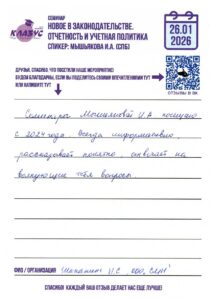 КЛАЗУС
СЕМИНАР
НОВОЕ В ЗАКОНОДАТЕЛЬСТВЕ.
ОТЧЕТНОСТЬ И УЧЕТНАЯ ПОЛИТИКА
СПИКЕР: МЫШЬЯКОВА И.А. (СПБ)
26.01
2026
ДРУЗЬЯ, СПАСИБО, ЧТО ПОСЕТИЛИ НАШЕ МЕРОПРИЯТИЕ!
БУДЕМ БЛАГОДАРНЫ, ЕСЛИ ВЫ ПОДЕЛИТЕСЬ СВОИМИ ВПЕЧАТЛЕНИЯМИ ТУТ
ИЛИ НАПИШИТЕ ТУТ
ОТЗЫВЫ В ВК
Семинары Мышьяковой И.А посещаю
с 2024 года. Всегда информативно,
рассказывает понятно, отвечает на
волнующие вопросы.
ФИО / ОРГАНИЗАЦИЯ
СПАСИБО! КАЖДЫЙ ВАШ ОТЗЫВ ДЕЛАЕТ НАС ЕЩЕ ЛУЧШЕ!